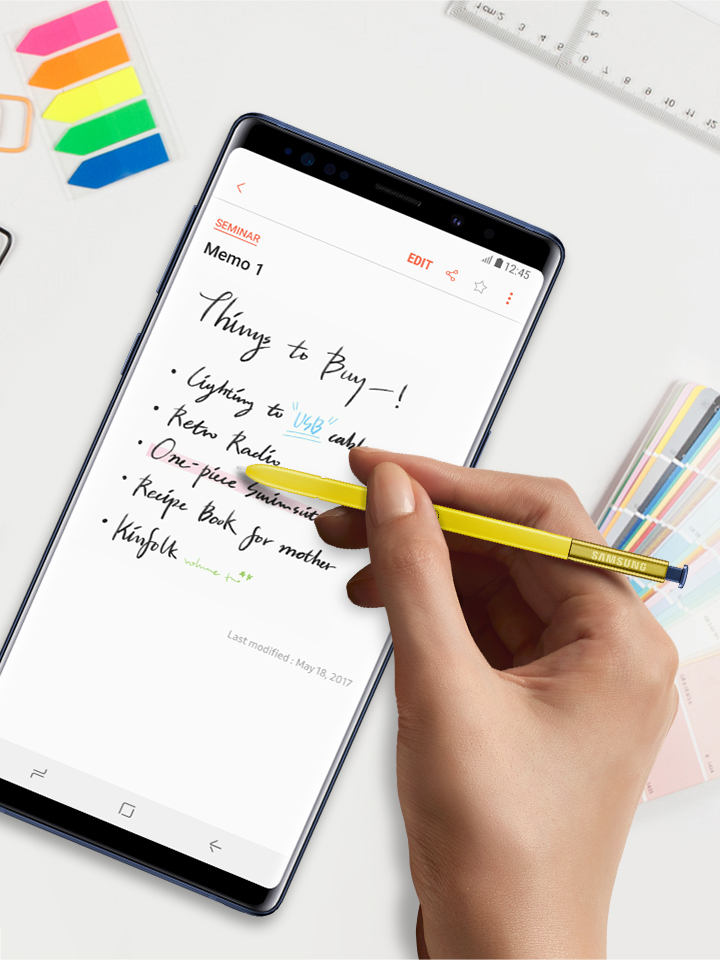 12:45
SEMINAR
EDIT
Memo 1
Things to Buy—!
• Lighting to "USB" cabl
• Retro Radio
• One-piece Swimsuit
• Recipe Book for mother
• Kinfolk volume two
Last modified : May 18, 2017
SAMSUNG
1cm 2 3 4 5 6 7 8 9 10 11 12